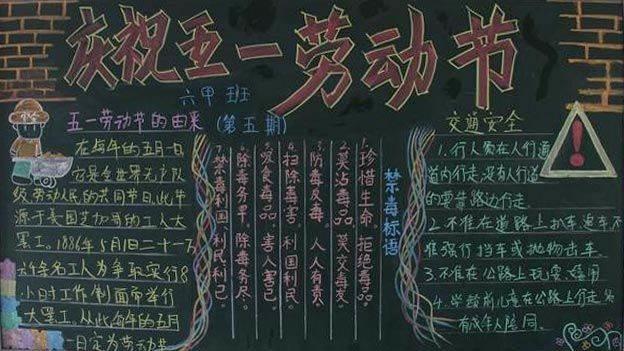 庆祝五一劳动节
六甲班
(第五期)
五一劳动节的由来
在每年的五月一
它是全世界无产阶
级、劳动人民的共同节日,此节
源于美国芝加哥的工人大
罢工.1886年5月1日二十一万
六千余名工人为争取实行8
小时工作制而举行
大罢工,从此每年的五月
一日定为劳动节
禁毒标语
1.珍惜生命。拒绝毒品。
2.莫沾毒品,莫交毒友。
3.防毒反毒,人人有责。
4.扫除毒害。利国利民。
5.吸食毒品。害人害己。
6.除毒务早,除毒务尽。
7.禁毒利国、利民、利己。
交通安全
1.行人需在人行道
道内行走,没有人行道
的要靠路边行走。
2.不准在道路上扒车、追车,不
准强行挡车或抛物击车。
3.不准在公路上玩耍、嬉闹
4.学龄前儿童在公路上行走
有成年人陪同。